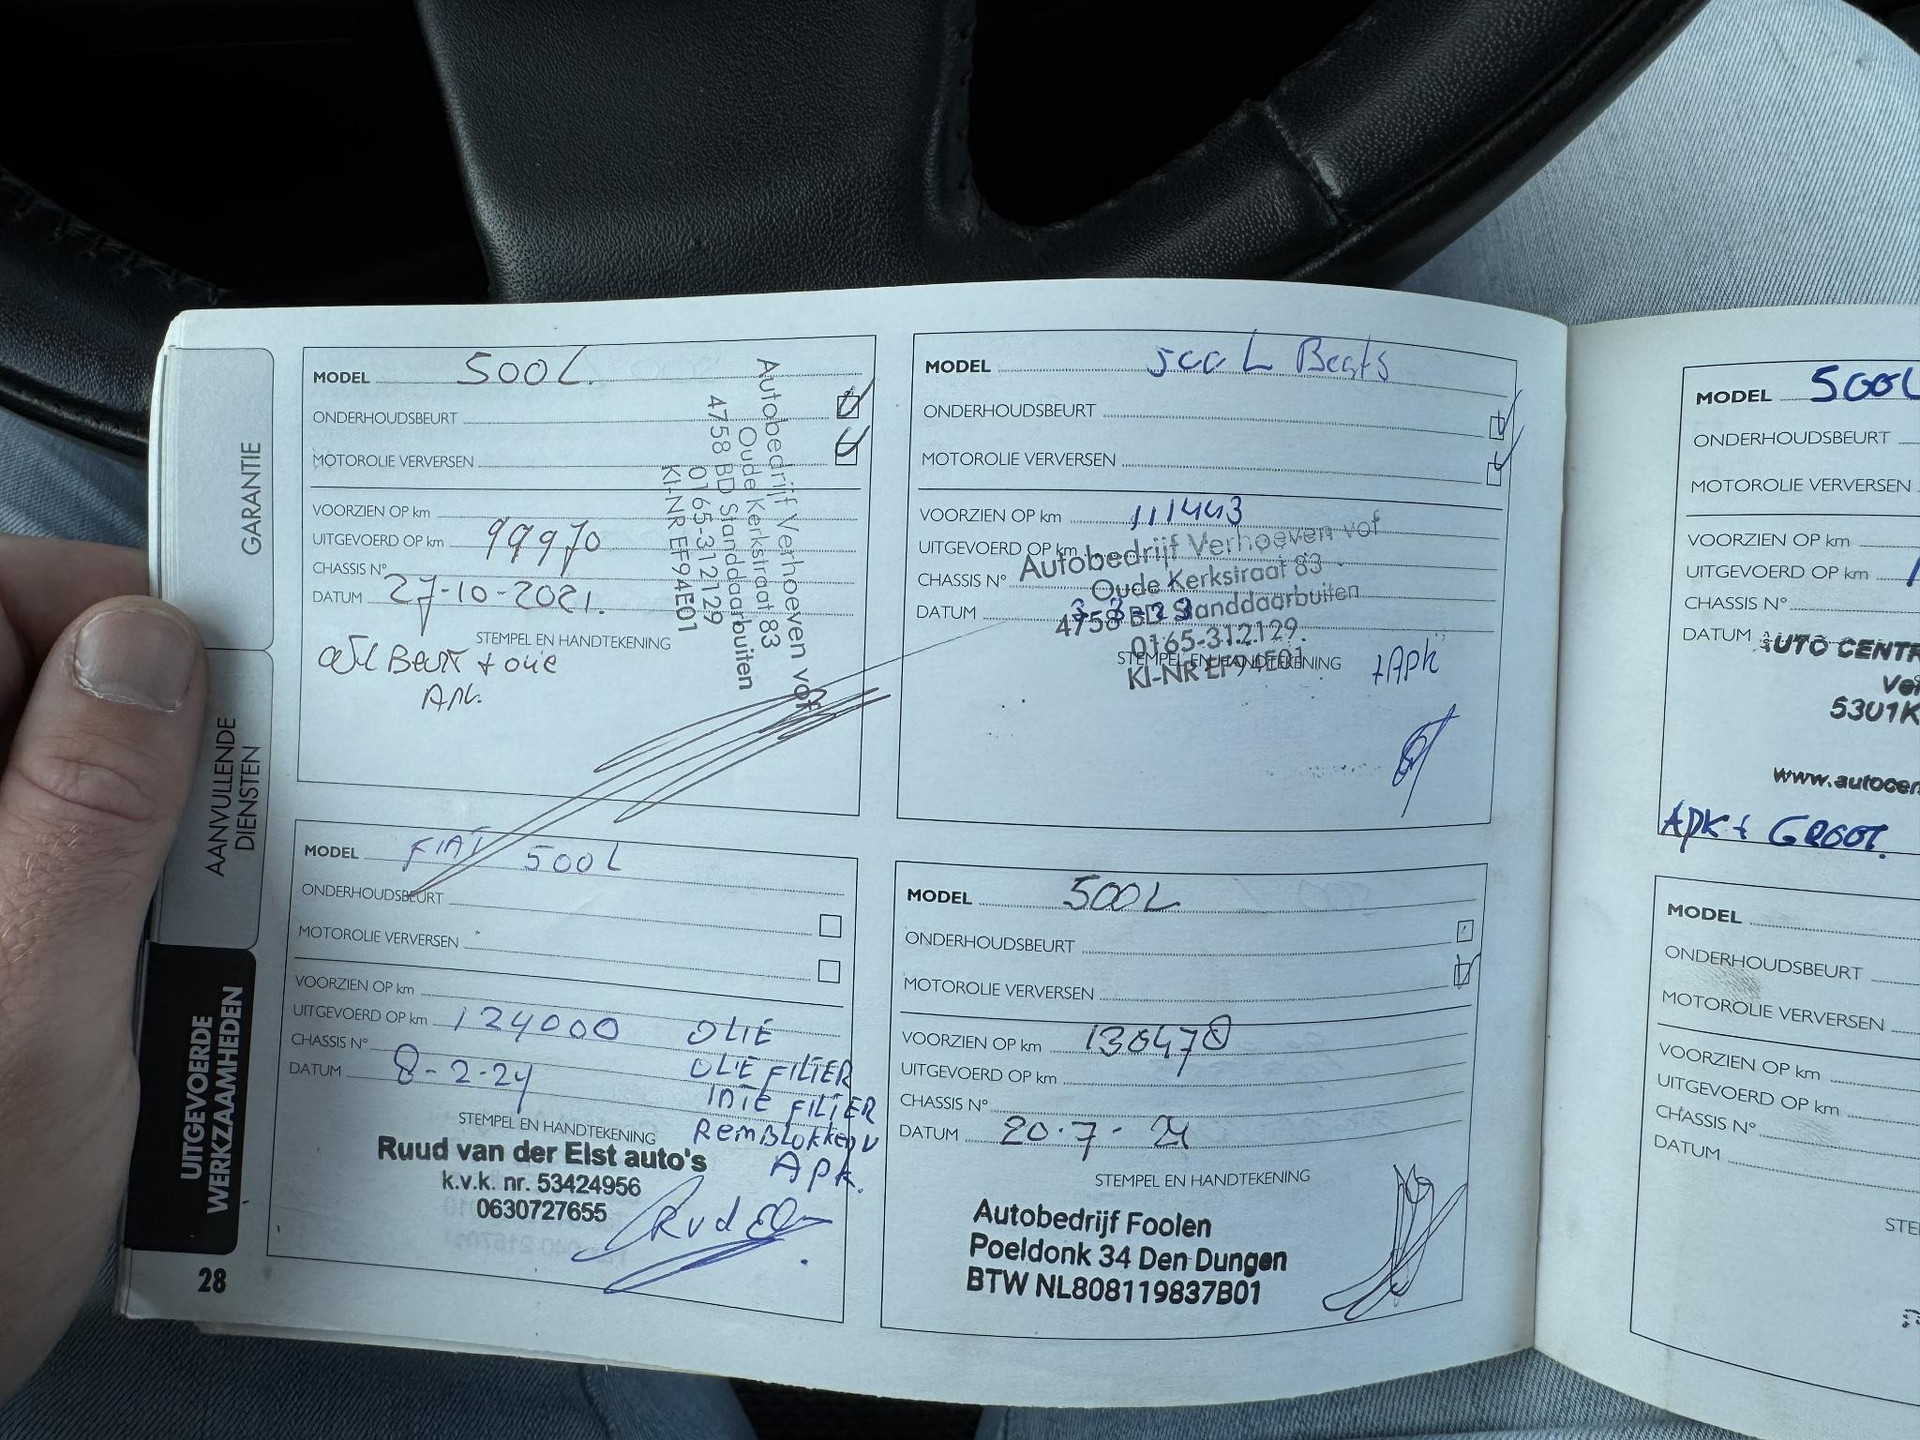 GARANTIE
AANVULLENDE
DIENSTEN
UITGEVOERDE
WERKZAAMHEDEN
28
MODEL 500L.
ONDERHOUDSBEURT
MOTOROLIE VERVERSEN
VOORZIEN OP km
UITGEVOERD OP km 99970
CHASSIS N°
DATUM 27-10-2021.
STEMPEL EN HANDTEKENING
Beurt + olie
Apk.
Autobedrijf Verhoeven vof
Oude Kerkstraat 83
4758 BD Standdaarbuiten
0165-312129
KI-NR EF94E01
MODEL 500L Beats
ONDERHOUDSBEURT
MOTOROLIE VERVERSEN
VOORZIEN OP km 111443
UITGEVOERD OP km
CHASSIS N°
DATUM 3-3-23
Autobedrijf Verhoeven vof
Oude Kerkstraat 83
4758 BD Standdaarbuiten
0165-312129
STEMPEL EN HANDTEKENING
KI-NR EF94E01
+APK
MODEL FIAT 500L
ONDERHOUDSBEURT
MOTOROLIE VERVERSEN
VOORZIEN OP km
UITGEVOERD OP km 124000
CHASSIS N°
DATUM 8-2-24
OLIE
OLIE FILTER
INTE FILTER
REMBLOKKEN V
APK.
STEMPEL EN HANDTEKENING
Ruud van der Elst auto's
k.v.k. nr. 53424956
0630727655
RvdElst
MODEL 500L
ONDERHOUDSBEURT
MOTOROLIE VERVERSEN
VOORZIEN OP km 130478
UITGEVOERD OP km
CHASSIS N°
DATUM 20-7-24
STEMPEL EN HANDTEKENING
Autobedrijf Foolen
Poeldonk 34 Den Dungen
BTW NL808119837B01
MODEL 500L
ONDERHOUDSBEURT
MOTOROLIE VERVERSEN
VOORZIEN OP km
UITGEVOERD OP km 1
CHASSIS N°
DATUM
AUTO CENTR
Ve
5301K
www.autocen
APK + GROOT.
MODEL
ONDERHOUDSBEURT
MOTOROLIE VERVERSEN
VOORZIEN OP km
UITGEVOERD OP km
CHASSIS N°
DATUM
STE